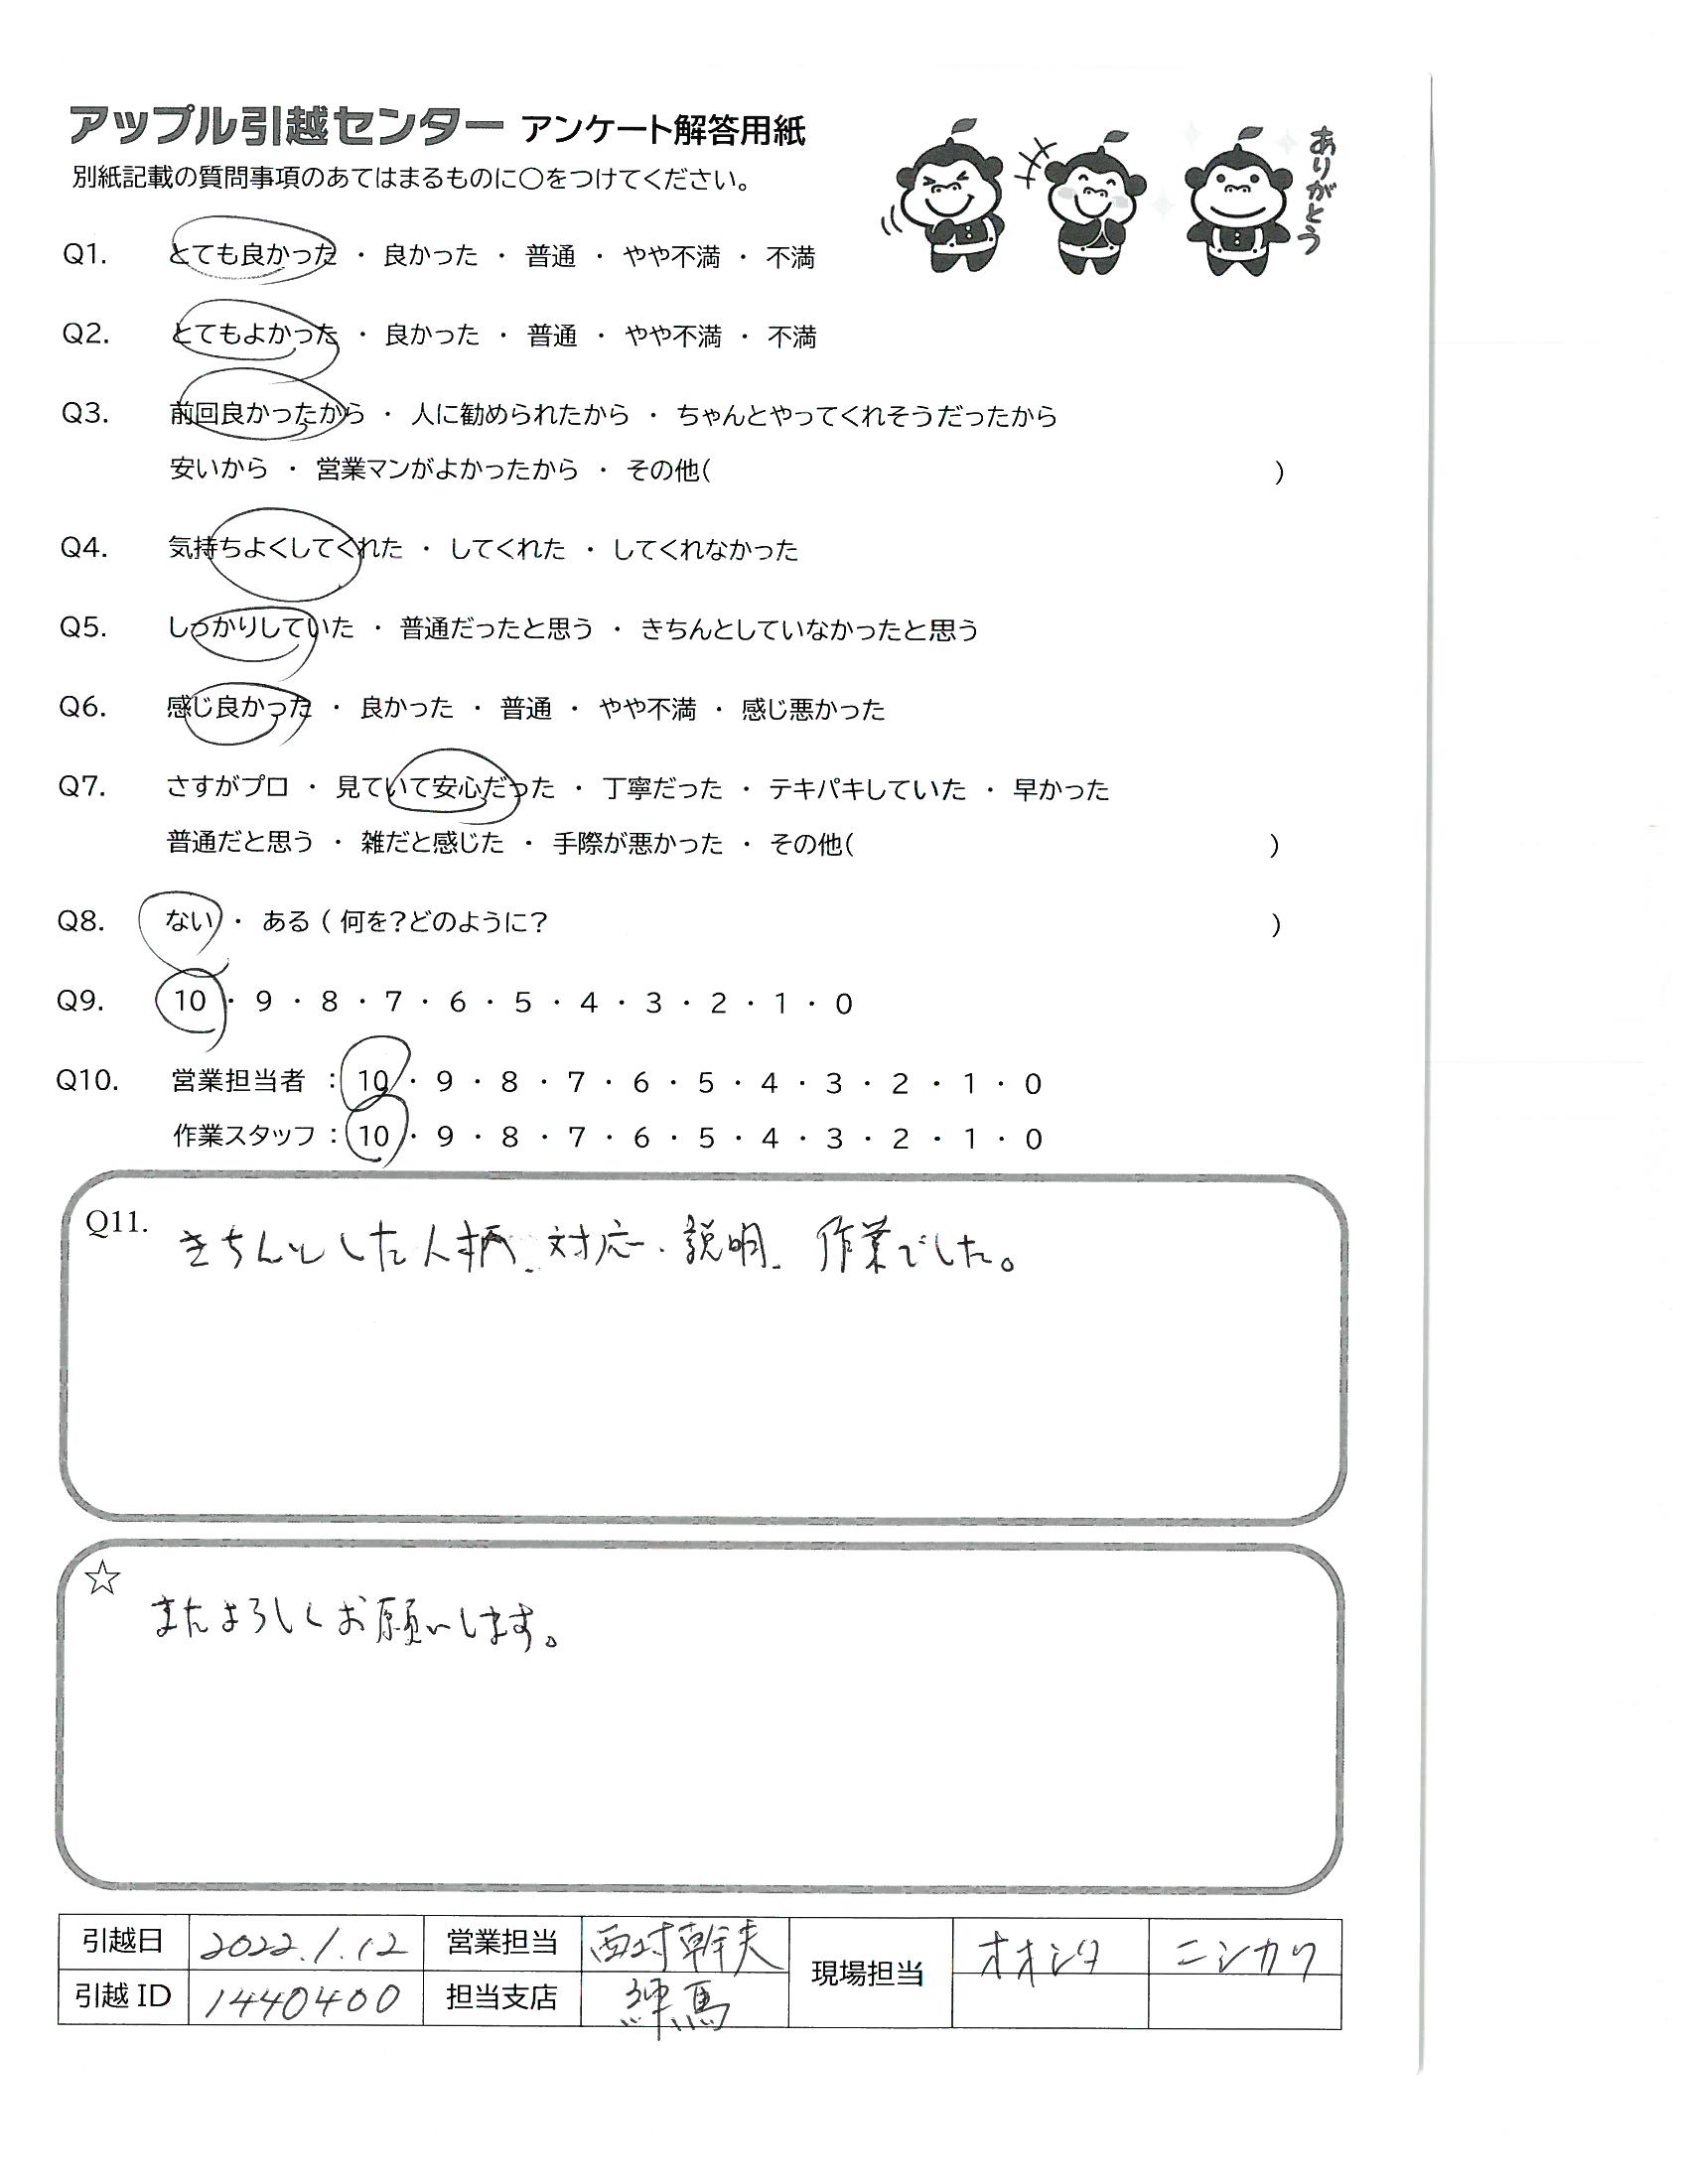 アップル引越センター アンケート解答用紙
ありがとう
別紙記載の質問事項のあてはまるものに○をつけてください。
Q1. とても良かった ・ 良かった ・ 普通 ・ やや不満 ・ 不満
Q2. とてもよかった ・ 良かった ・ 普通 ・ やや不満 ・ 不満
Q3. 前回良かったから ・ 人に勧められたから ・ ちゃんとやってくれそうだったから
安いから ・ 営業マンがよかったから ・ その他( )
Q4. 気持ちよくしてくれた ・ してくれた ・ してくれなかった
Q5. しっかりしていた ・ 普通だったと思う ・ きちんとしていなかったと思う
Q6. 感じ良かった ・ 良かった ・ 普通 ・ やや不満 ・ 感じ悪かった
Q7. さすがプロ ・ 見ていて安心だった ・ 丁寧だった ・ テキパキしていた ・ 早かった
普通だと思う ・ 雑だと感じた ・ 手際が悪かった ・ その他( )
Q8. ない ・ ある ( 何を?どのように? )
Q9. 10 ・ 9 ・ 8 ・ 7 ・ 6 ・ 5 ・ 4 ・ 3 ・ 2 ・ 1 ・ 0
Q10. 営業担当者 : 10 ・ 9 ・ 8 ・ 7 ・ 6 ・ 5 ・ 4 ・ 3 ・ 2 ・ 1 ・ 0
作業スタッフ : 10 ・ 9 ・ 8 ・ 7 ・ 6 ・ 5 ・ 4 ・ 3 ・ 2 ・ 1 ・ 0
Q11. きちんとした人柄、対応・説明、作業でした。
☆ またよろしくお願いします。
引越日 2022.1.12 営業担当 西村幹夫 現場担当 オオシタ ニシカワ
引越 ID 1440400 担当支店 練馬